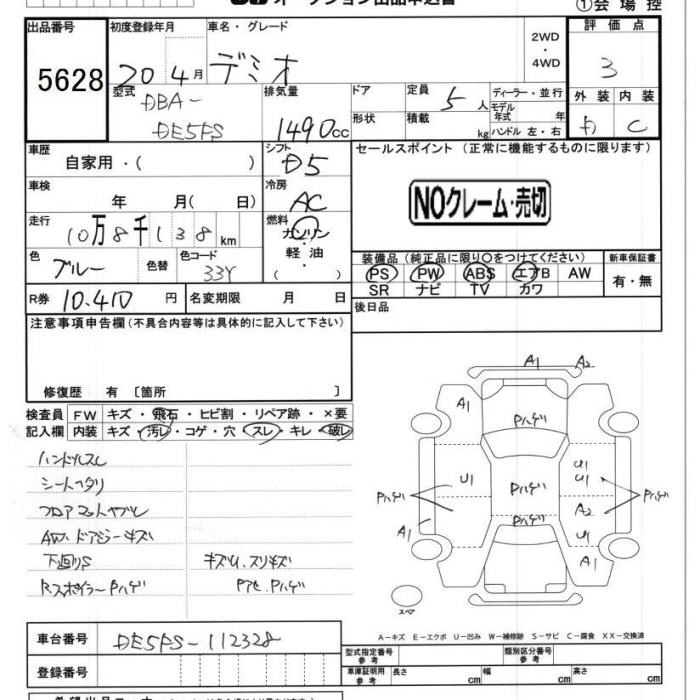 オークション出品申込書
①会場控
出品番号
5628
初度登録年月
20 4月
車名・グレード
デミオ
2WD
・
4WD
評価点
3
型式
DBA-
DE5FS
排気量
1490cc
ドア
形状
定員
5人
積載
kg
ディーラー・並行
モデル年式 年
ハンドル 左・右
外装 内装
C
車歴
自家用・( )
シフト
D5
セールスポイント (正常に機能するものに限ります)
車検
年 月( 日)
冷房
AC
NOクレーム・売切
走行
10万8千138km
燃料
ガソリン
・
軽油
( )
色
ブルー
色替
色コード
33Y
装備品 (純正品に限り○をつけてください)
PS PW ABS エアB AW
SR ナビ TV カワ
新車保証書
有・無
R券
10.410円
名変期限 月 日
後日品
注意事項申告欄(不具合内容等は具体的に記入して下さい)
修復歴 有 〔箇所 〕
検査員
記入欄
FW キズ・飛石・ヒビ割・リペア跡・×要
内装 キズ・汚レ・コゲ・穴・スレ・キレ・破レ
ハンドルスレ
シートヘタリ
フロアマットヤブレ
AW・ドアミラーキズ
下廻りS
Rスポイラー Pハゲ
キズU.スリキズ
Pハゲ
A1 A2
A1 Pハゲ
U1 U1
U1
Pハゲ Pハゲ Pハゲ
A2
A1 Pハゲ U1
A1
スペア
A-キズ E-エクボ U-凹み W-補修跡 S-サビ C-腐食 XX-交換済
車台番号
DE5FS-112328
登録番号
型式指定番号
参考
類別区分番号
参考
車庫証明用
参考
長さ cm
幅 cm
高さ cm